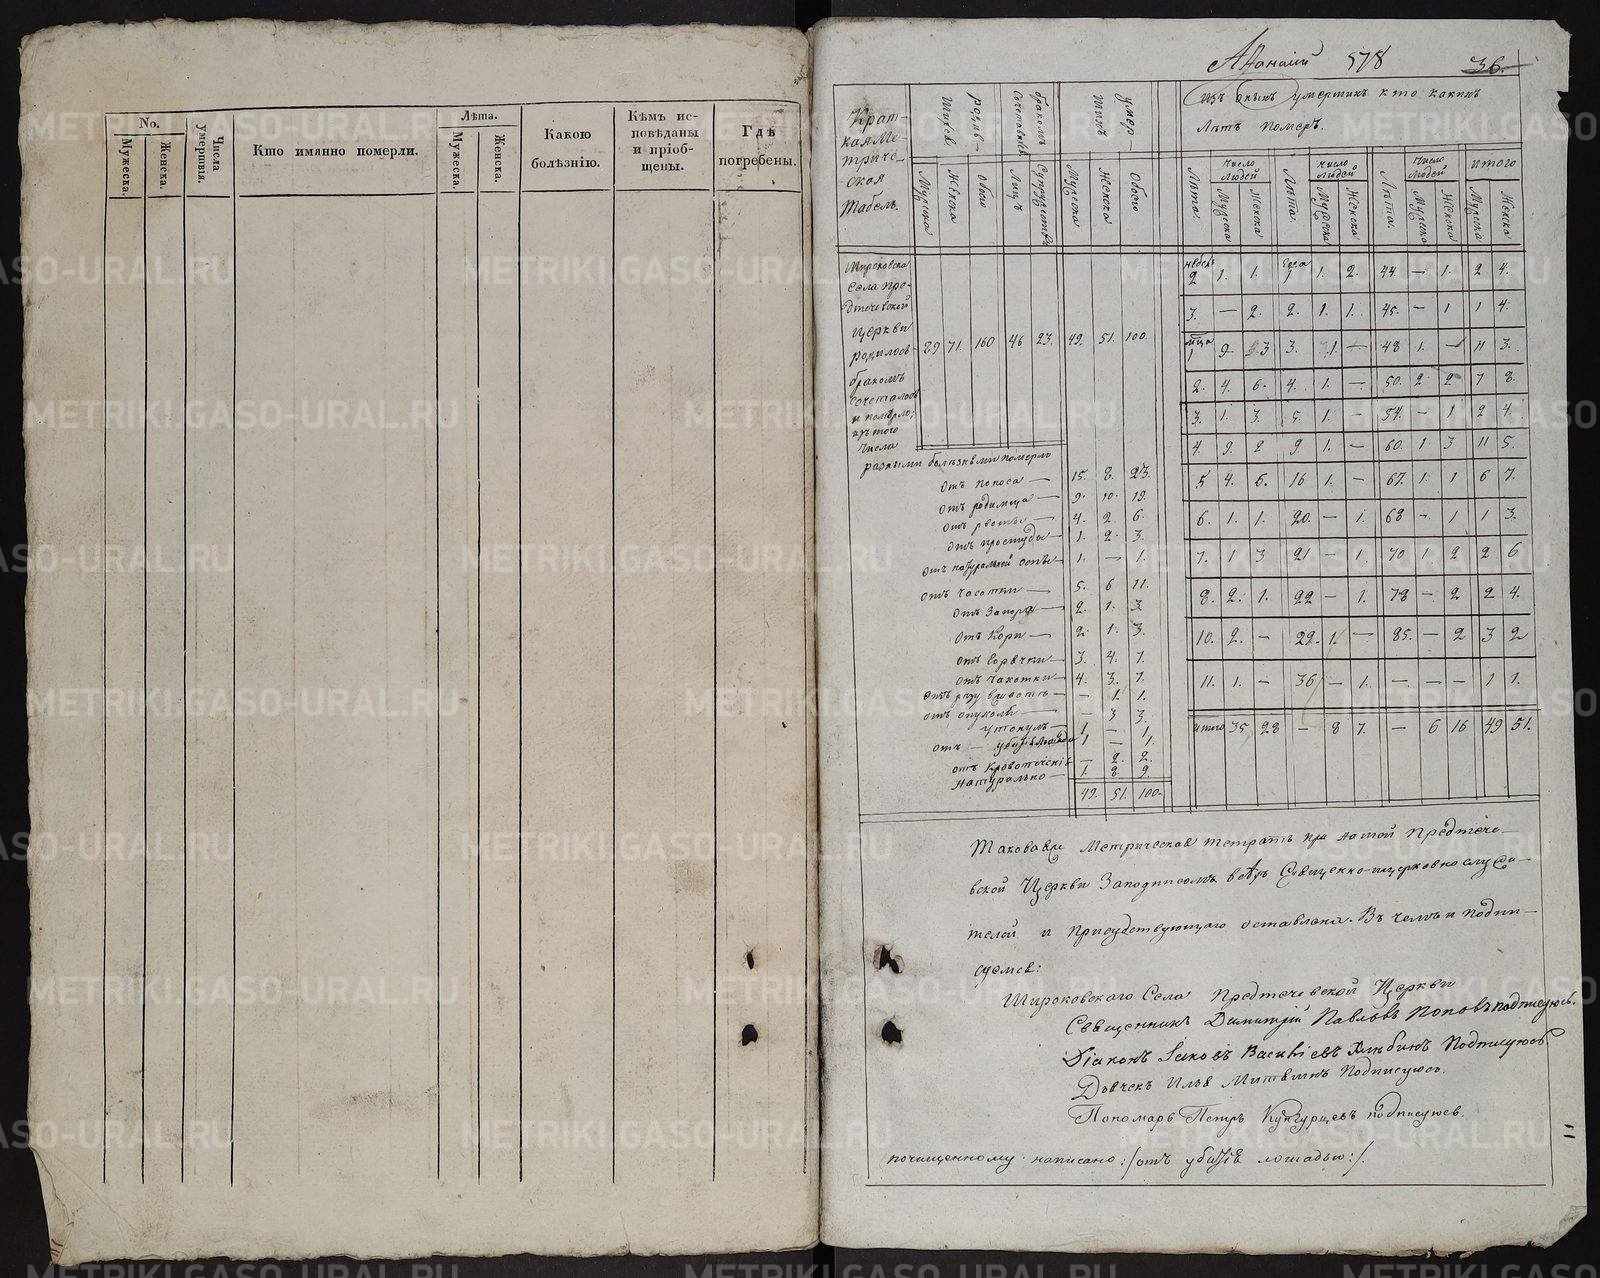 No.
Мужеска.
Женска.
Числа умершія.
Кто имянно померли.
Лѣта.
Мужеска.
Женска.
Какою болѣзнію.
Кѣмъ исповѣданы и пріобщены.
Гдѣ погребены.
578
36.
Краткая Метрическая Табель.
родившихся
Мужеска
Женска
обоего
бракомъ сочетавшихся
Лицъ
Супружествъ
умерших
Мужеска
Женска
Обоего
Изъ оныхъ умершихъ кто какихъ
Лѣтъ померъ.
Лѣта.
число людей
Мужеска
Женска
Лѣта.
число людей
Мужеска
Женска
Лѣта.
число людей
Мужеска
Женска
итого
Мужеска
Женска
Широковска
села Пре-
дтечевской
Церкви
родилось
бракомъ
сочеталось
и померло;
изъ того
числа
89 71. 160 46 23. 49. 51. 100.
разными болѣзнями померло
отъ поноса — 15. 8. 23.
отъ родимца — 9. 10. 19.
отъ рвоты — 4. 2 6.
отъ простуды — 1. 2. 3.
отъ натуральной оспы — 1. — 1.
отъ чесотки — 5. 6 11.
отъ запора — 2. 1. 3.
отъ кори — 2. 1. 3.
отъ горячки — 3. 4. 7.
отъ чахотки — 4. 3. 7.
— 1. 1.
отъ опухоли — — 3 3.
утонулъ — 1. — 1.
1 — 1.
отъ кровотеченія — 2. 2.
натурально — 1. 8. 9.
49. 51. 100.
2 1. 1. 1 1. 2. 44. — 1. 2 4.
3. — 2. 2. 1. 1. 45. — 1 1 4.
1 9. 3 3. 1. — 48 1. — 11 3.
2. 4. 6. 4. 1. — 50. 2 2 7 8
3. 1. 3. 5. 1. — 54. — 1 2 4.
4. 9. 2 9. 1. — 60. 1 3 11 5.
5 4. 6. 16 1. — 67. 1. 1 6 7.
6. 1. 1. 20. — 1. 68 — 1 1 3.
7. 1 3 21 — 1. 70 1 2 2 6
8. 2. 1. 22 — 1. 78 — 2 2 4.
10. 2. — 29. 1. — 85. — 2 3 2
11. 1. — 36 — 1. — — — 1 1.
итого 35 28 — 8 7. — 6 16 49 51.
Таковая Метрическая тетрать при самой Предтече-
вской Церкви Заподписомъ всѣхъ Священно-ицерковнослужи-
телей и присудствующаго оставлена. Въ чемъ и подпи-
суемся:
Широковскаго Села Предтечевской Церкви
Священникъ Димитрій Павловъ Поповъ подписуюсь.
Діаконъ Іаковъ Подписуюсь.
Дьячекъ Подписуюсь.
Пономарь Петръ Кунгурцевъ подписуюсь.
почищенному написано: /отъ убитія лошадью:/.